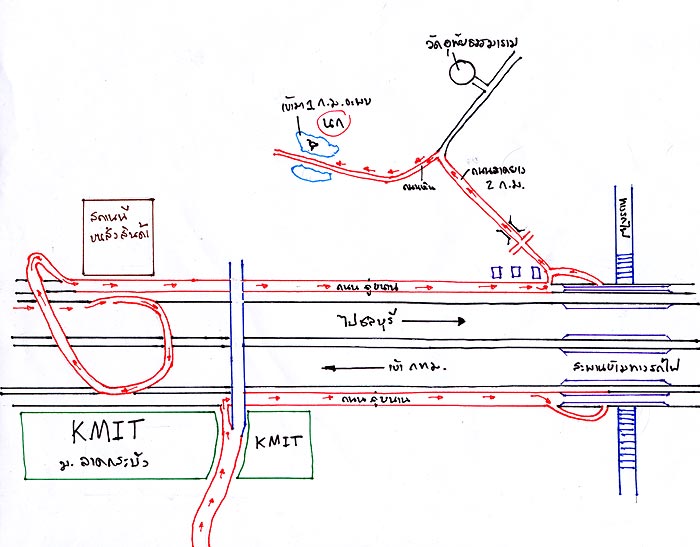 วัดอุทัยธรรมาราม
เข้ามา 1 ก.ม. จะพบ
นก
ถนนหิน
ถนนลาดยาง
2 ก.ม.
ทางรถไฟ
สถานนี
ขนส่งสินค้า
ถนน คู่ขนาน
ไปชลบุรี
เข้า กทม.
สะพานข้ามทางรถไฟ
ถนน คู่ขนาน
KMIT
ม. ลาดกระบัง
KMIT